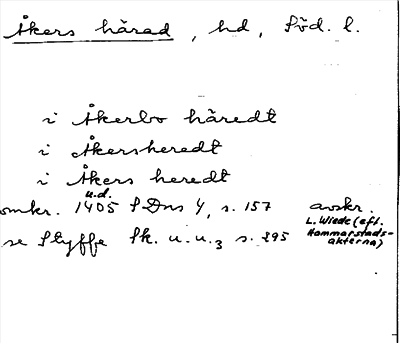 Åkers härad, hd, Söd. l.
i Åkerbo häredt
i Åkersheredt
i Åkers heredt
u.d.
omkr. 1405 SDns 4, s. 157 avskr.
L. Wiede (efl.
Hammarstads-
akterna)
se Styffe Sk. u. u.3 s. 295